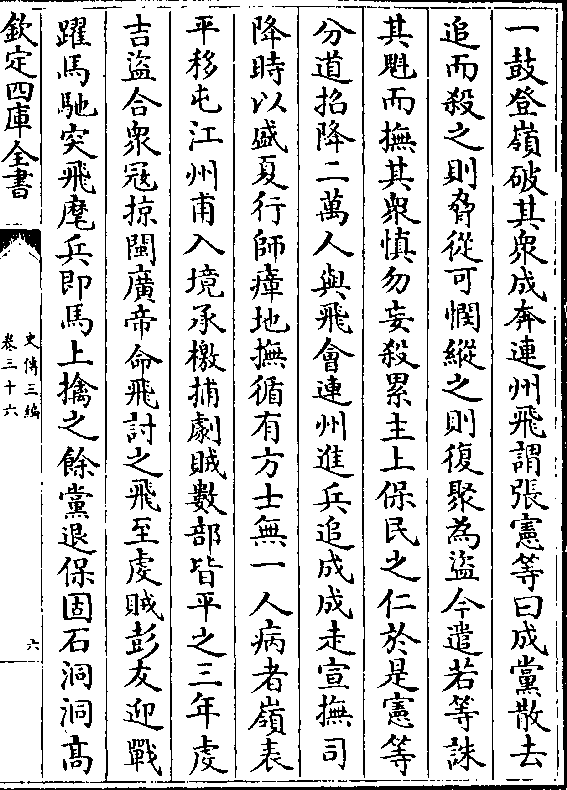 一鼓登嶺破其衆成奔連州飛謂張憲等曰成黨散去
追而殺之則脅從可憫縱之則復聚為盜今遣若等誅
其魁而撫其衆慎勿妄殺累主上保民之仁於是憲等
分道招降二萬人與飛會連州進兵追成成走宣撫司
降時以盛夏行師瘴地撫循有方士無一人病者嶺表
平移屯江州甫入境承檄捕劇賊數部皆平之三年虔
吉盜合衆冦掠閩廣帝命飛討之飛至虔賊彭友迎戰
躍馬馳突飛麾兵即馬上擒之餘黨退保固石洞洞髙
欽定四庫全書
史傳三編
卷三十六
六